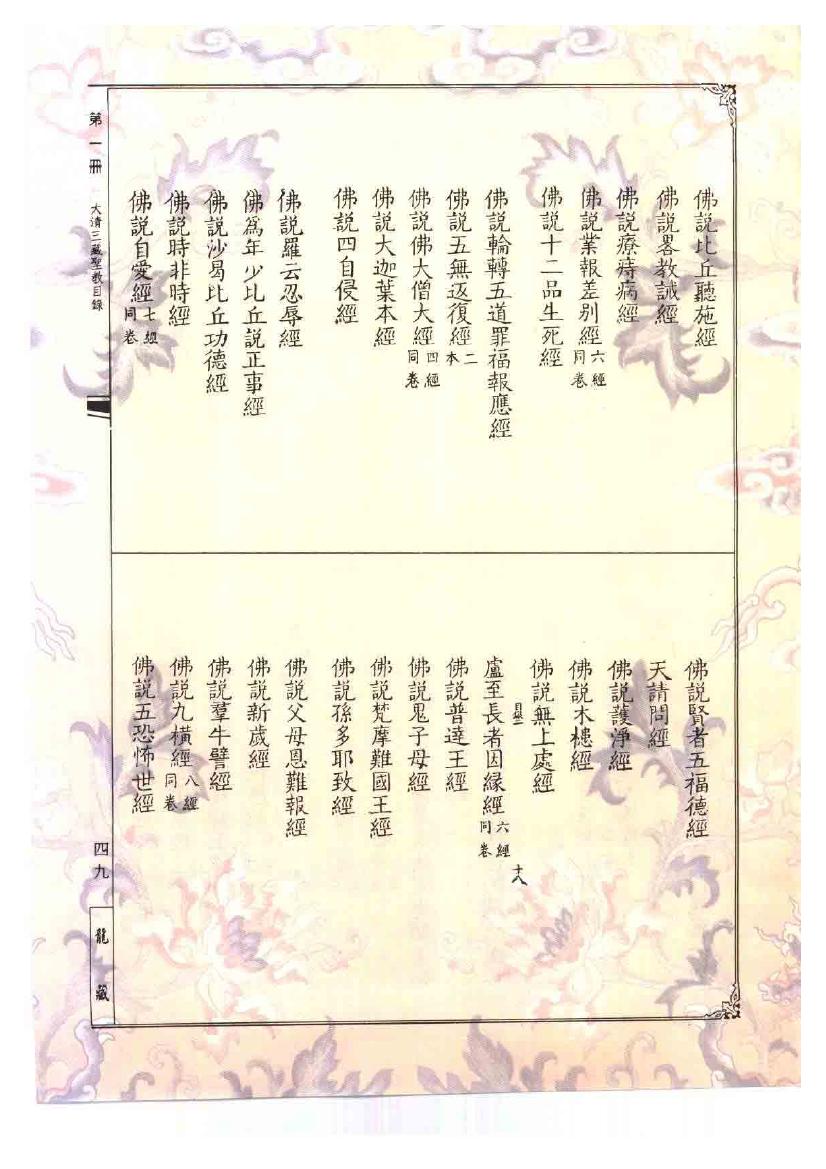 佛說比丘聽施經
佛說畧教誡經
佛說療痔病經
佛說業報差別經六經同卷
佛說十二品生死經
佛說輪轉五道罪福報應經
佛說五無返復經二本
佛說佛大僧大經四經同卷
佛說大迦葉本經
佛說四自侵經
佛說羅云忍辱經
佛爲年少比丘說正事經
佛說沙曷比丘功德經
佛說時非時經
佛說自愛經七經同卷
佛說賢者五福德經
天請問經
佛說護淨經
佛說木槵經
佛說無上處經
盧至長者因緣經六經同卷
十八
佛說普達王經
佛說鬼子母經
佛說梵摩難國王經
佛說孫多耶致經
佛說父母恩難報經
佛說新歲經
佛說羣牛譬經
佛說九橫經八經同卷
佛說五恐怖世經
第一冊
大清三藏聖教目錄
四九
龍藏